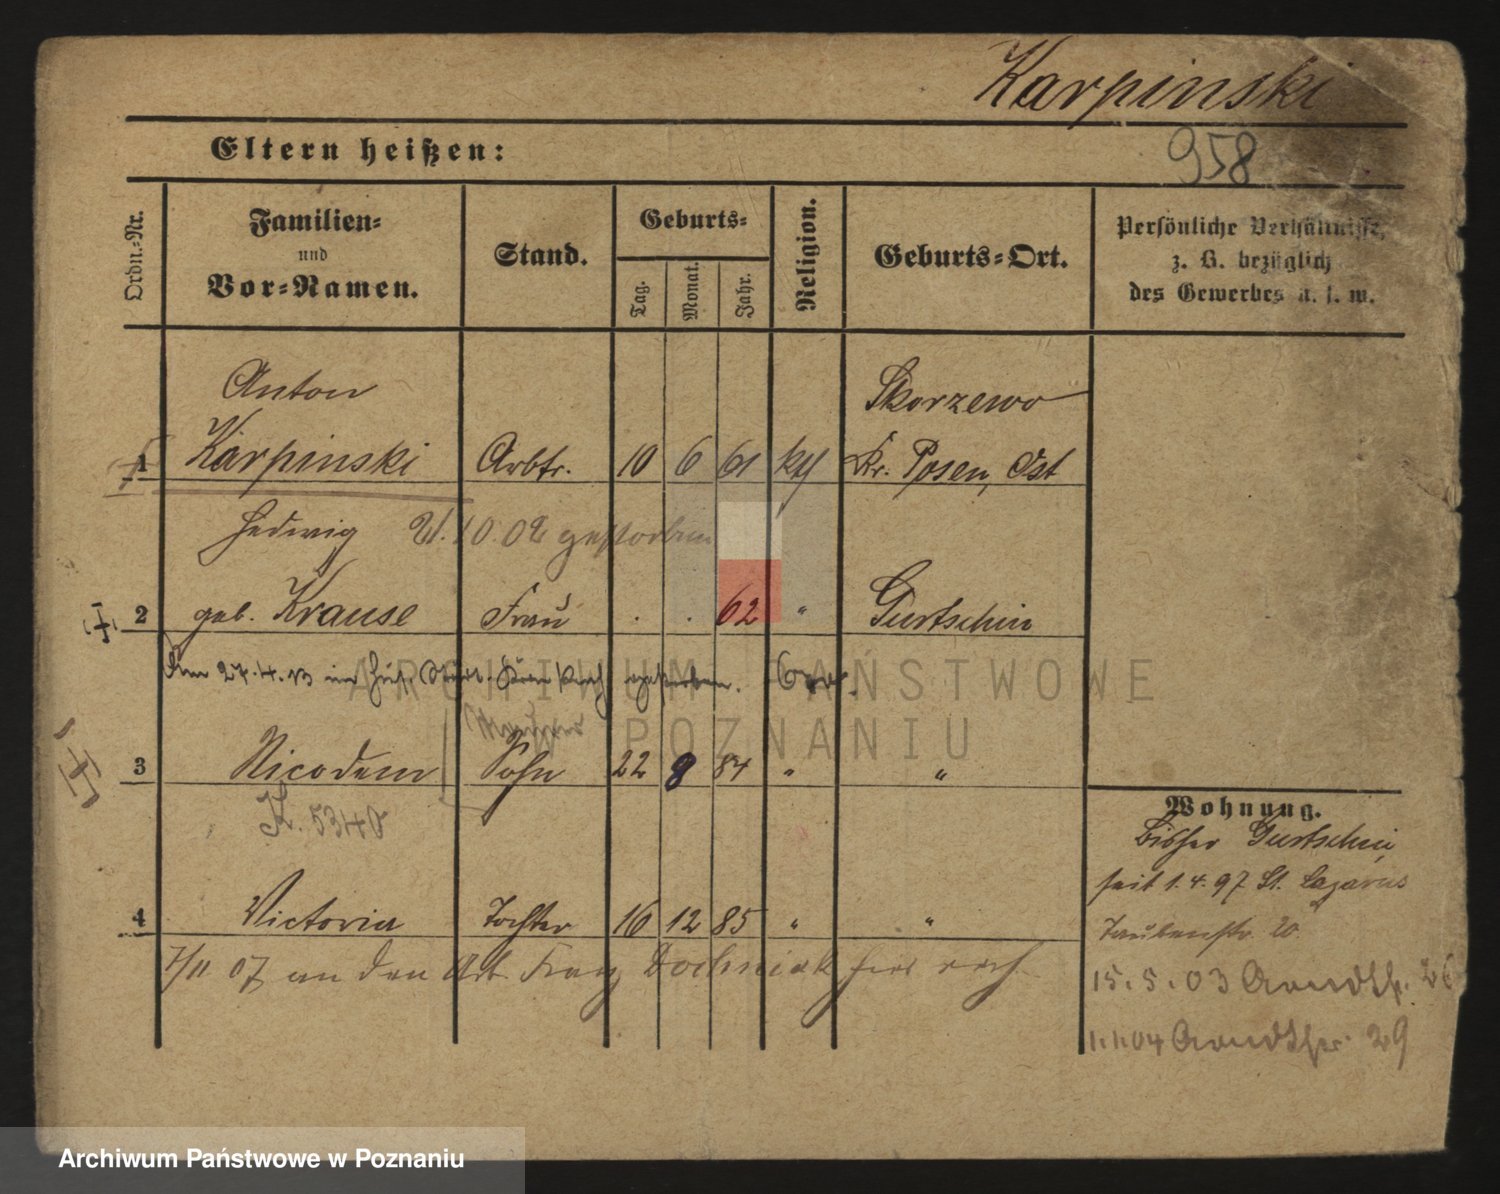 Karpinski
958
Eltern heißen:
Ordn.-Nr.
Familien-
und
Vor-Namen.
Stand.
Geburts-
Tag.
Monat.
Jahr.
Religion.
Geburts-Ort.
Persönliche Verhältnisse,
z. B. bezüglich
des Gewerbes u. s. w.
Anton Skorzewo
1 Karpinski Arbtr. 10 6 61 kth Kr. Posen, Ost
Hedwig 21.10.02 gestorben
2 geb. Krause Frau . . 62 " Gurtschin
Am 27.4.13 im gestorben.
3 Nicodem Sohn 22 8 84 " "
K. 5340
4 Victoria Tochter 16 12 85 " "
7/11 07 an den Arb. Franz Dochniak
Wohnung.
Bisher Gurtschin,
seit 1.4.97 St. Lazarus
Taubenstr. 20
15.5.03 Arndtstr. 26
1.1.04 Arndtstr. 29
ARCHIWUM PAŃSTWOWE
W POZNANIU
Archiwum Państwowe w Poznaniu